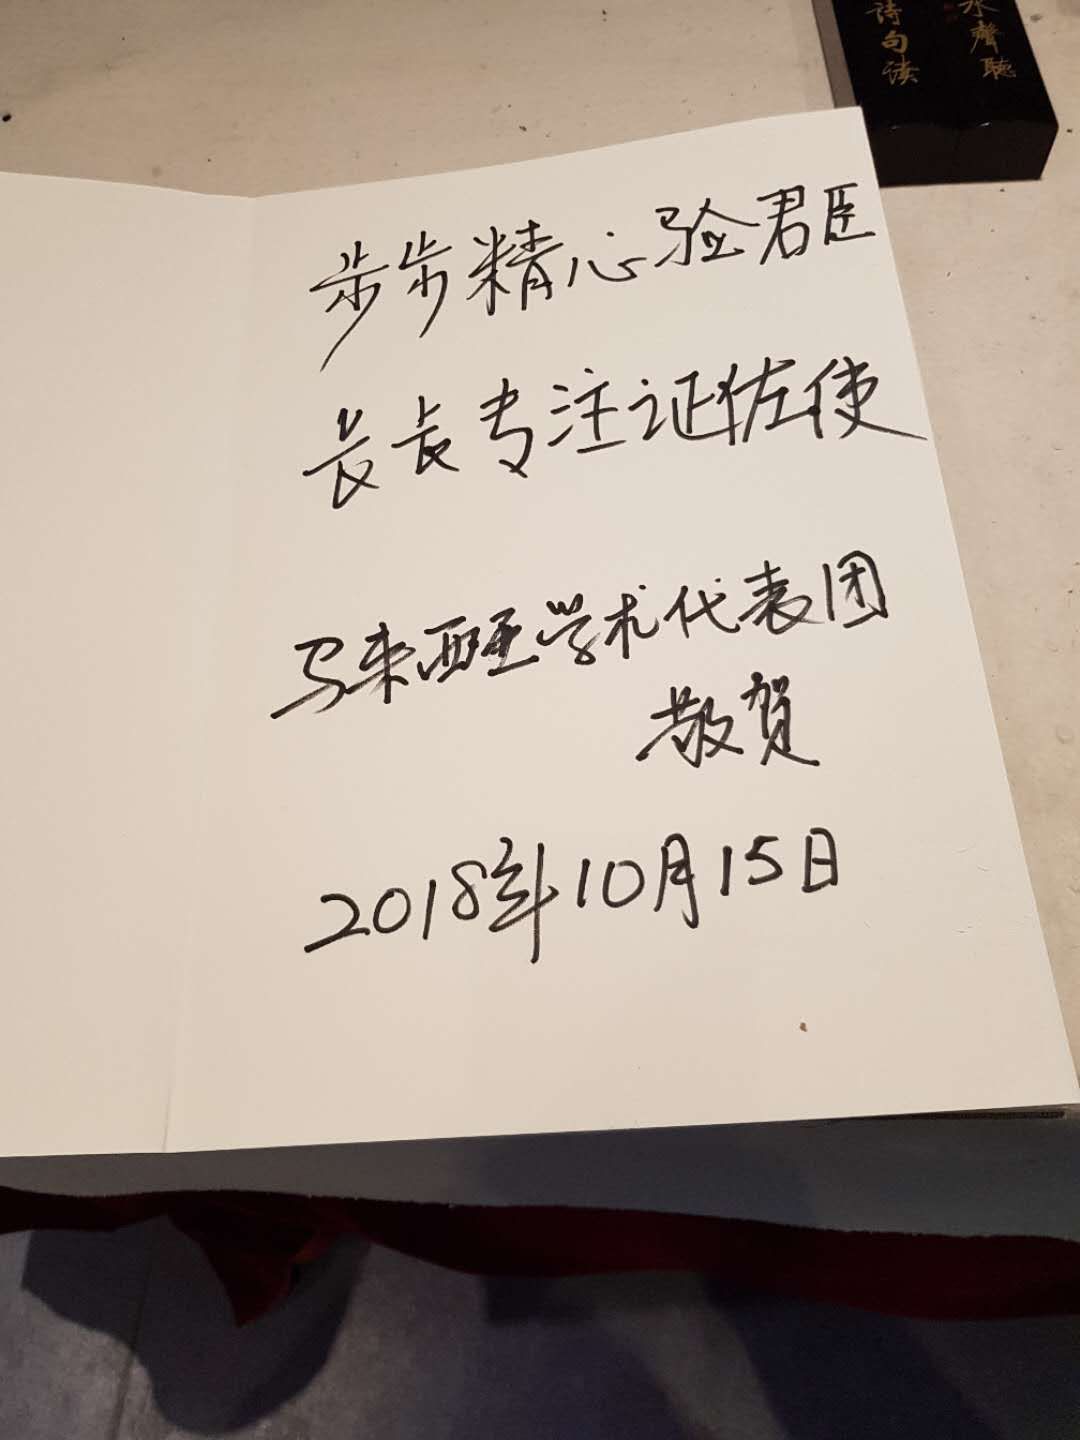 步步精心验君臣
长长专注证佐使
马来西亚学术代表团
敬贺
2018年10月15日
水聲聽
诗句读